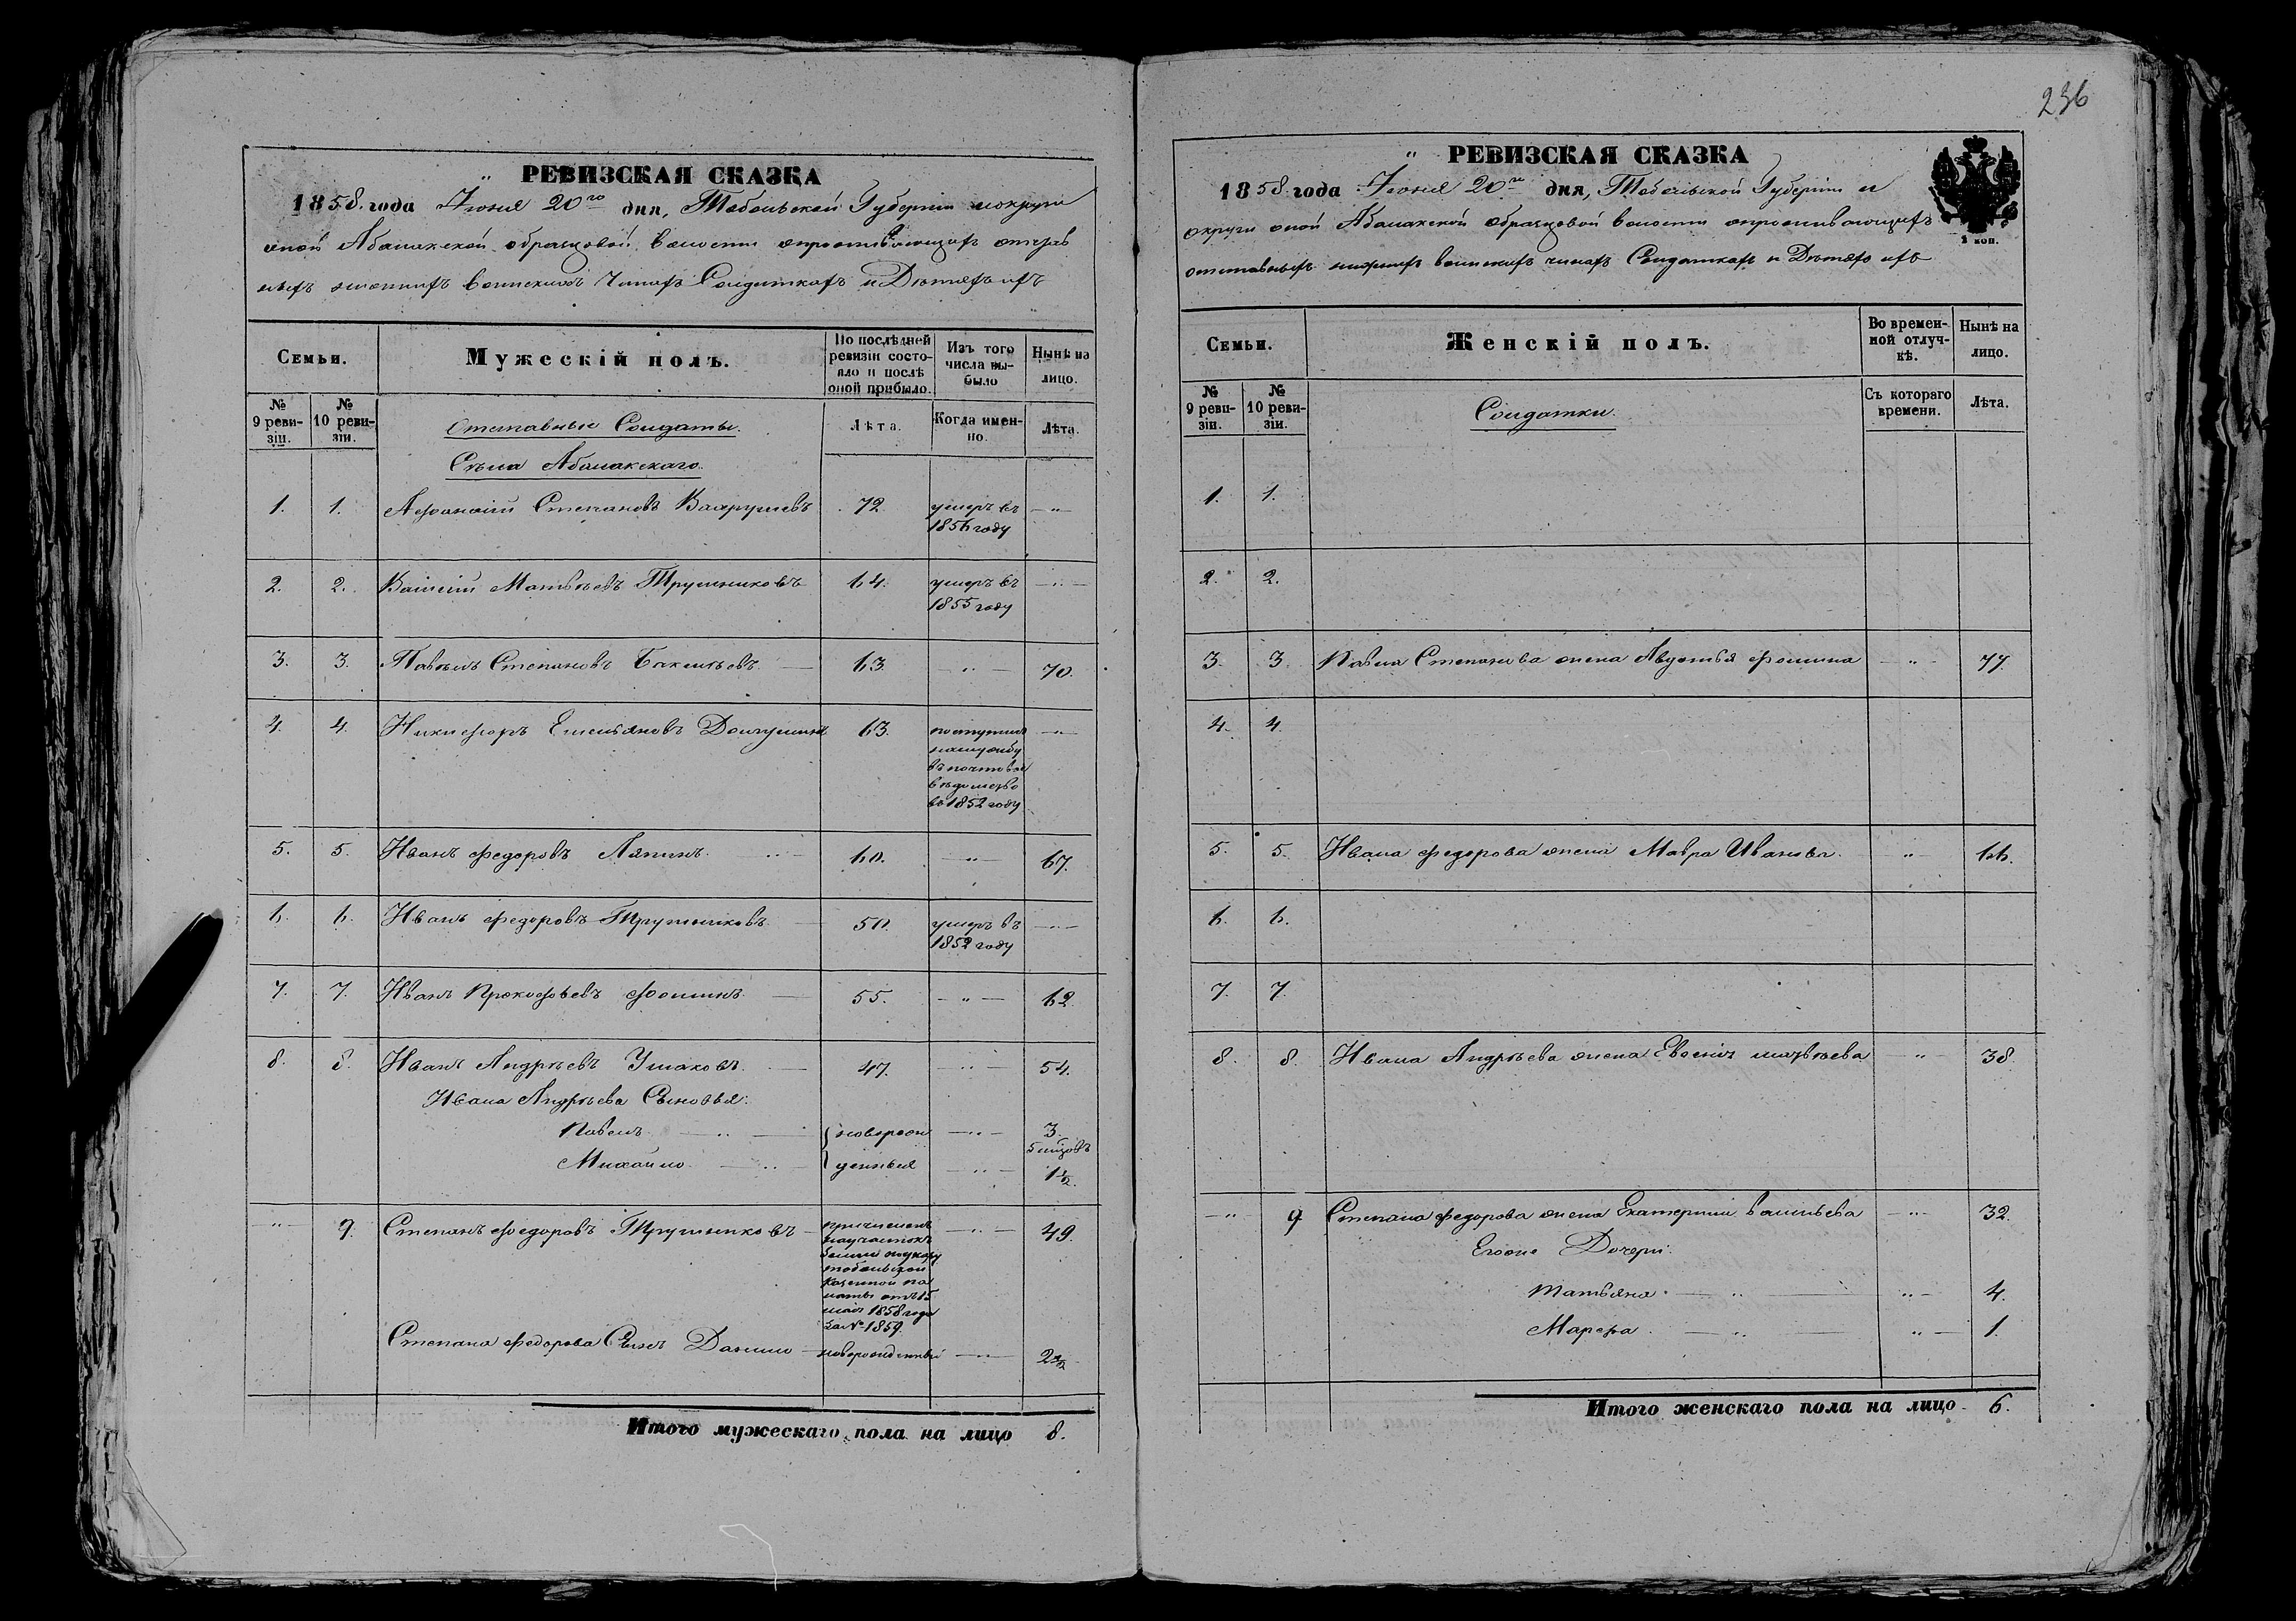 236
РЕВИЗСКАЯ СКАЗКА
1858. года Іюня 20го дня, Тобольской Губерніи и округи
оной Абалакской образцовой волости о проживающихъ отстав
ныхъ нижнихъ воинскихъ чинахъ Солдаткахъ и Дѣтяхъ ихъ
Семьи.
Мужескій полъ.
По послѣдней ревизіи состояло и послѣ оной прибыло.
Изъ того числа выбыло
Нынѣ на лицо.
№ 9 ревизіи.
№ 10 ревизіи.
Отставные Солдаты.
Лѣта.
Когда именно.
Лѣта.
Села Абалакскаго.
1. 1. Афонасій Степановъ Вахрушевъ 72 умеръ въ 1856 году — " —
2. 2. Василій Матвѣевъ Трушниковъ 64. умеръ въ 1855 году — " —
3. 3. Павелъ Степановъ — 63. — " — 70.
4. 4. Никифоръ Емельяновъ 63. поступилъ на службу въ почтовое вѣдомство въ 1852 году — " —
5. 5. Иванъ Федоровъ Ляпинъ. 60. — " — 67.
6. 6. Иванъ Федоровъ Трушниковъ. 50. умеръ въ 1852 году — " —
7. 7. Иванъ Прокофьевъ Фоминъ. — 55. — " — 62.
8. 8. Иванъ Андрѣевъ Ушаковъ. — 47. — " — 54.
Ивана Андрѣева Сыновья:
Павелъ. — " — новорож — " — 3.
5 мѣсяцовъ
Михайло. — " — денныя — " — 1½.
— " — 9. Степанъ Федоровъ Трушниковъ — причисленъ по указу тобольской казенной палаты отъ 15 мая 1858 года за № 1859. — " — 49.
Степана Федорова Сынъ Данило — новорожденный — " — 2½
Итого мужескаго пола на лицо 8.
РЕВИЗСКАЯ СКАЗКА
1858. года Іюня 20го дня, Тобольской Губерніи и
округи оной Абалакской образцовой волости о проживающихъ
отставныхъ нижнихъ воинскихъ чинахъ Солдаткахъ и Дѣтяхъ ихъ
коп.
Семьи.
Женскій полъ.
Во временной отлучкѣ.
Нынѣ на лицо.
№ 9 ревизіи.
№ 10 ревизіи.
Солдатки.
Съ котораго времени.
Лѣта.
1. 1.
2. 2.
3. 3. Павла Степанова жена Авдотья Фомина — " — 77.
4. 4.
5. 5. Ивана Федорова жена Мавра Иванова. — " — 66.
6. 6.
7. 7.
8. 8. Ивана Андрѣева жена Матвѣева " — 38.
— " — 9 Степана Федорова жена Екатерина Васильева — " — 32.
Егоже Дочери:
Татьяна. — " — " — 4.
Марфа. — " — " — 1.
Итого женскаго пола на лицо 6.